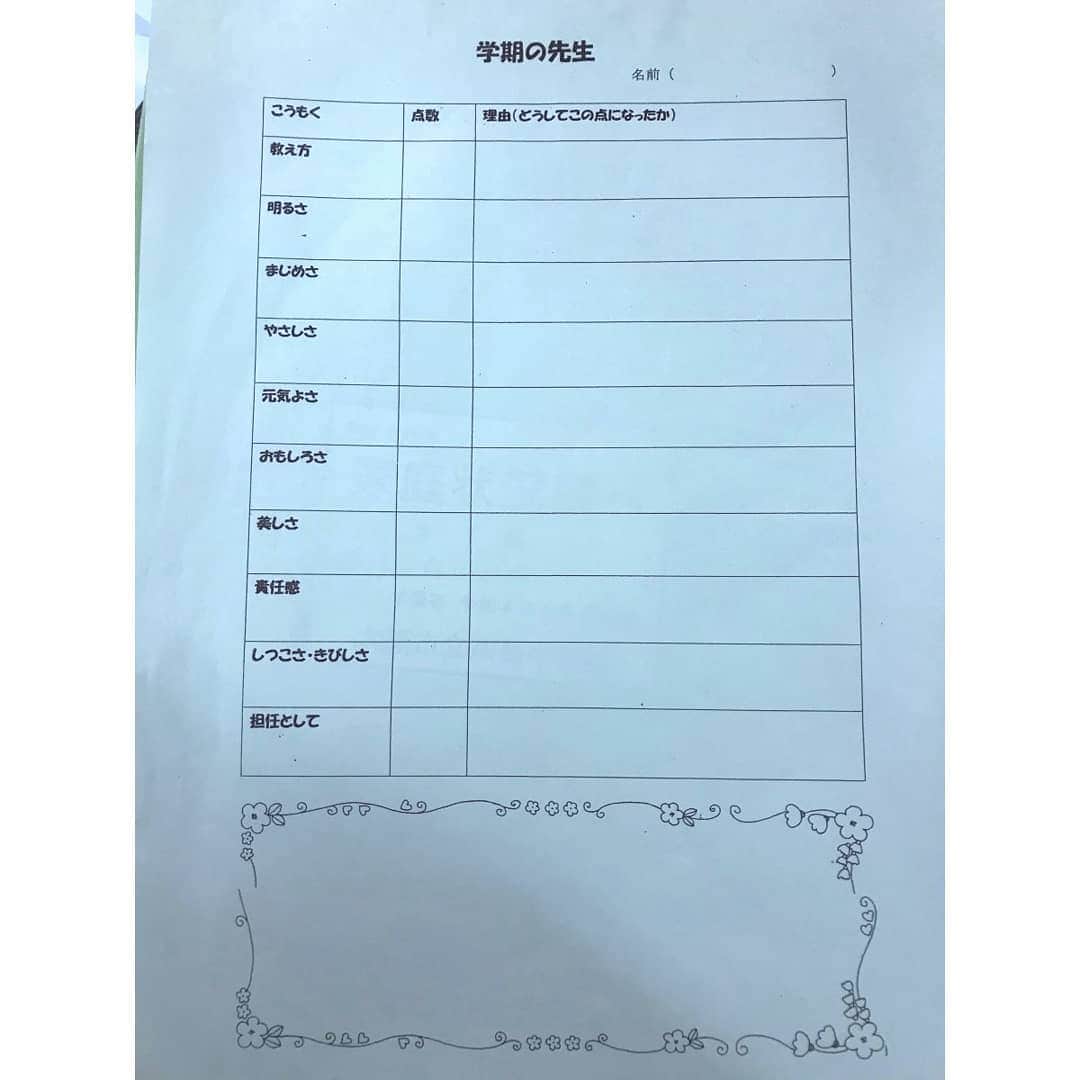 学期の先生
名前（　　　　　　　　　　）
こうもく　点数　理由(どうしてこの点になったか)
教え方
明るさ
まじめさ
やさしさ
元気よさ
おもしろさ
美しさ
責任感
しつこさ・きびしさ
担任として